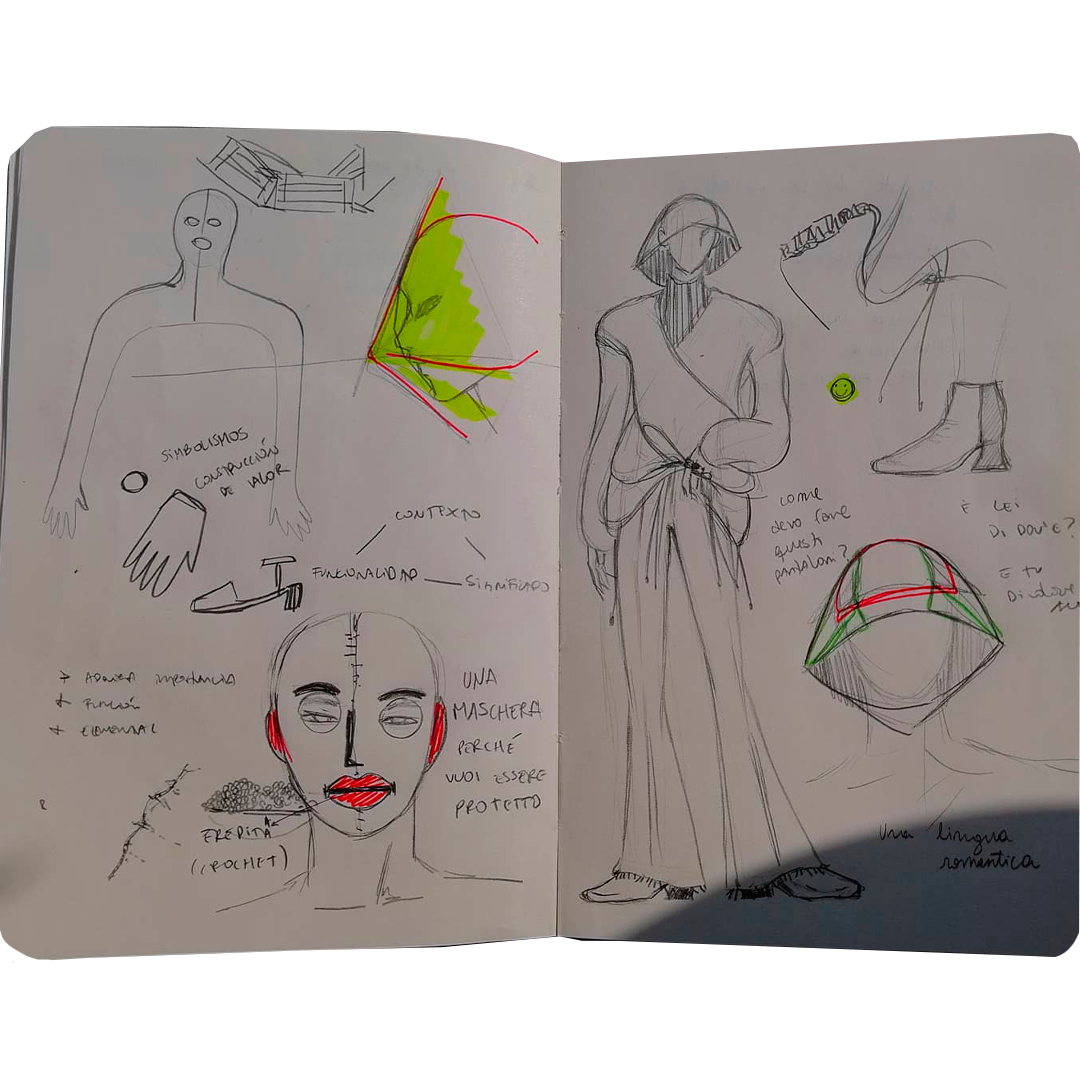 SIMBOLISMOS
CONSTRUCCIÓN
DE VALOR
CONTEXTO
FUNCIONALIDAD
SIGNIFICADO
+ ADQUIERA IMPORTANCIA
+ FUNCIÓN
+ ELEMENTAL
UNA
MASCHERA
PERCHÉ
VUOI ESSERE
PROTETTO
EREDITÀ
(CROCHET)
come
devo fare
questi
pantaloni?
È LEI
DI DOV'E?
E tu
Di dove
una lingua
romantica